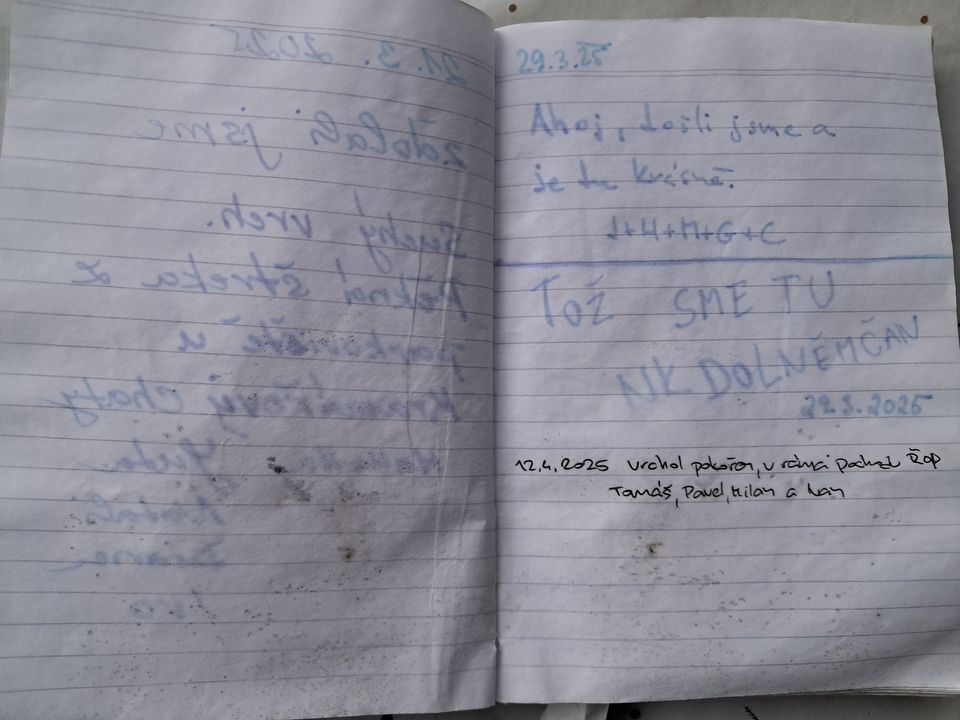 21. 3. 2025
zdolali jsme
Suchý vrch.
Pěkná štreka z
parkoviště u
Kramářovy chaty
Iva
29.3.25
Ahoj, došli jsme a
je tu krásně.
J+H+M+G+C
TOŽ SME TU
NK DOLNĚMČAN
29.3.2025
12.4.2025 Vrchol pokořen, v rámci ŘOP
Tomáš, Pavel, Milan a